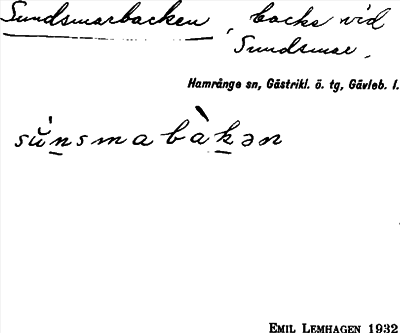 Sundsmarbacken, backe vid
Sundsmar.
Hamrånge sn, Gästrikl. ö. tg, Gävleb. l.
sŭ̀n̲smabàk̲ən
EMIL LEMHAGEN 1932